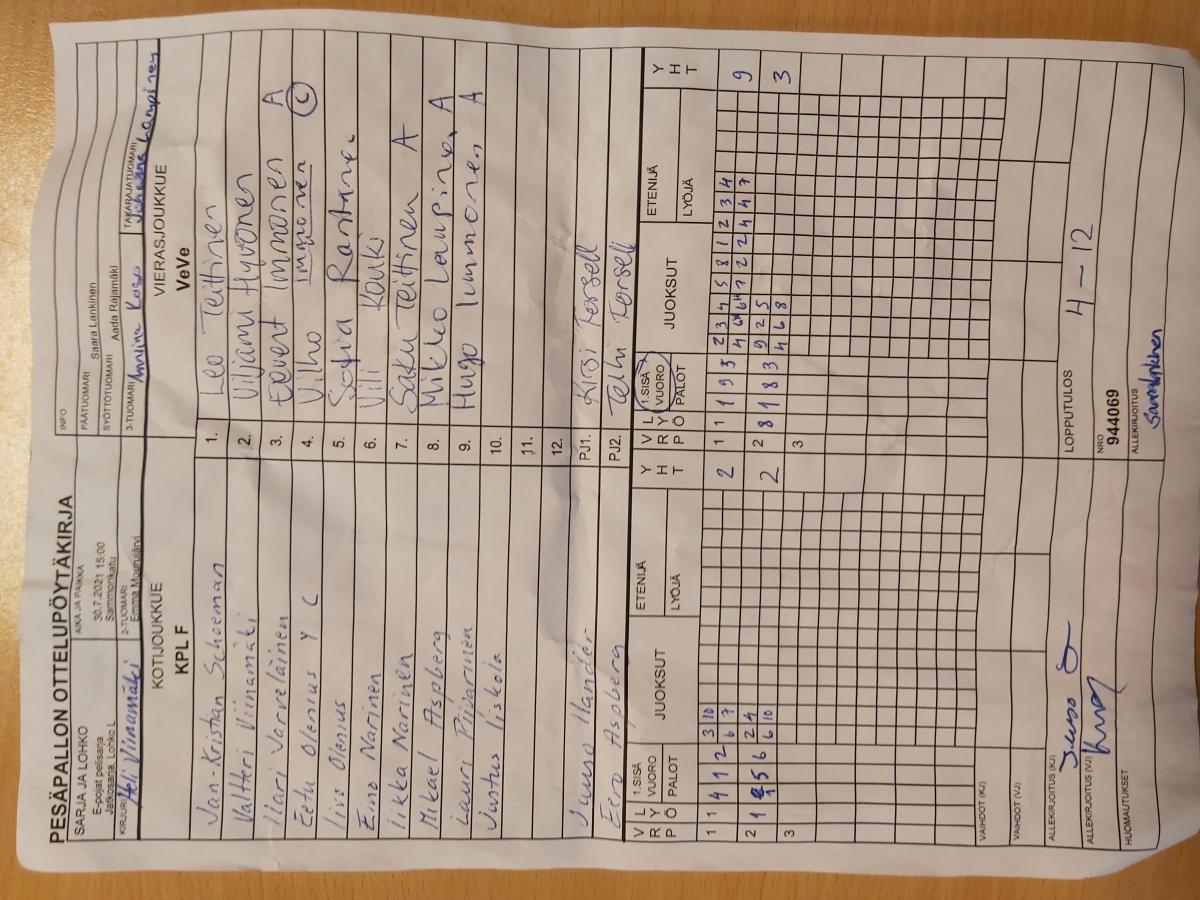 PESÄPALLON OTTELUPÖYTÄKIRJA
SARJA JA LOHKO
E-pojat pelisarja
Jatkosarja, Lohko L
AIKA JA PAIKKA
30.7.2021 15:00
Sammonkatu
INFO
PÄÄTUOMARI Saara Lankinen
SYÖTTÖTUOMARI Aada Rajamäki
KIRJURI Heli Viinamäki
2-TUOMARI
3-TUOMARI
TAKARAJATUOMARI Johanna Lampinen
KOTIJOUKKUE
KPL F
VIERASJOUKKUE
VeVe
Jan-Kristian Schoeman 1. Leo Teittinen
Valtteri Viinamäki 2. Viljami Hyvönen
Ilari Järveläinen 3. Eevert Immonen A
Eetu Olenius Y C 4. Vilho Immonen C
Iivo Olenius 5. Sofia Rantanen
Eino Narinen 6. Vili Kouki
Iikka Narinen 7. Saku Teittinen A
Mikael Aspberg 8. Mikko Laupinen A
Lauri Piivarinen 9. Hugo Immonen A
Justus Iiskola 10.
11.
12.
PJ1. Kirsi Forsell
Eero Aspberg PJ2. Telni Forsell
V R P L Y Ö 1.SISÄ VUORO PALOT JUOKSUT ETENIJÄ LYÖJÄ Y H T
V R P L Y Ö 1.SISÄ VUORO PALOT JUOKSUT ETENIJÄ LYÖJÄ Y H T
1 1 4 1 2 3 10 2
6 7
1 1 1 9 3 2 3 4 5 8 1 2 3 4 9
4 6 6 7 2 2 4 4 7
2 1 5 6 2 4 2
6 10
2 8 1 8 3 9 2 5 3
4 6 8
3
3
VAIHDOT (KJ)
VAIHDOT (VJ)
ALLEKIRJOITUS (KJ)
ALLEKIRJOITUS (VJ)
HUOMAUTUKSET
LOPPUTULOS 4 - 12
NRO
944069
ALLEKIRJOITUS